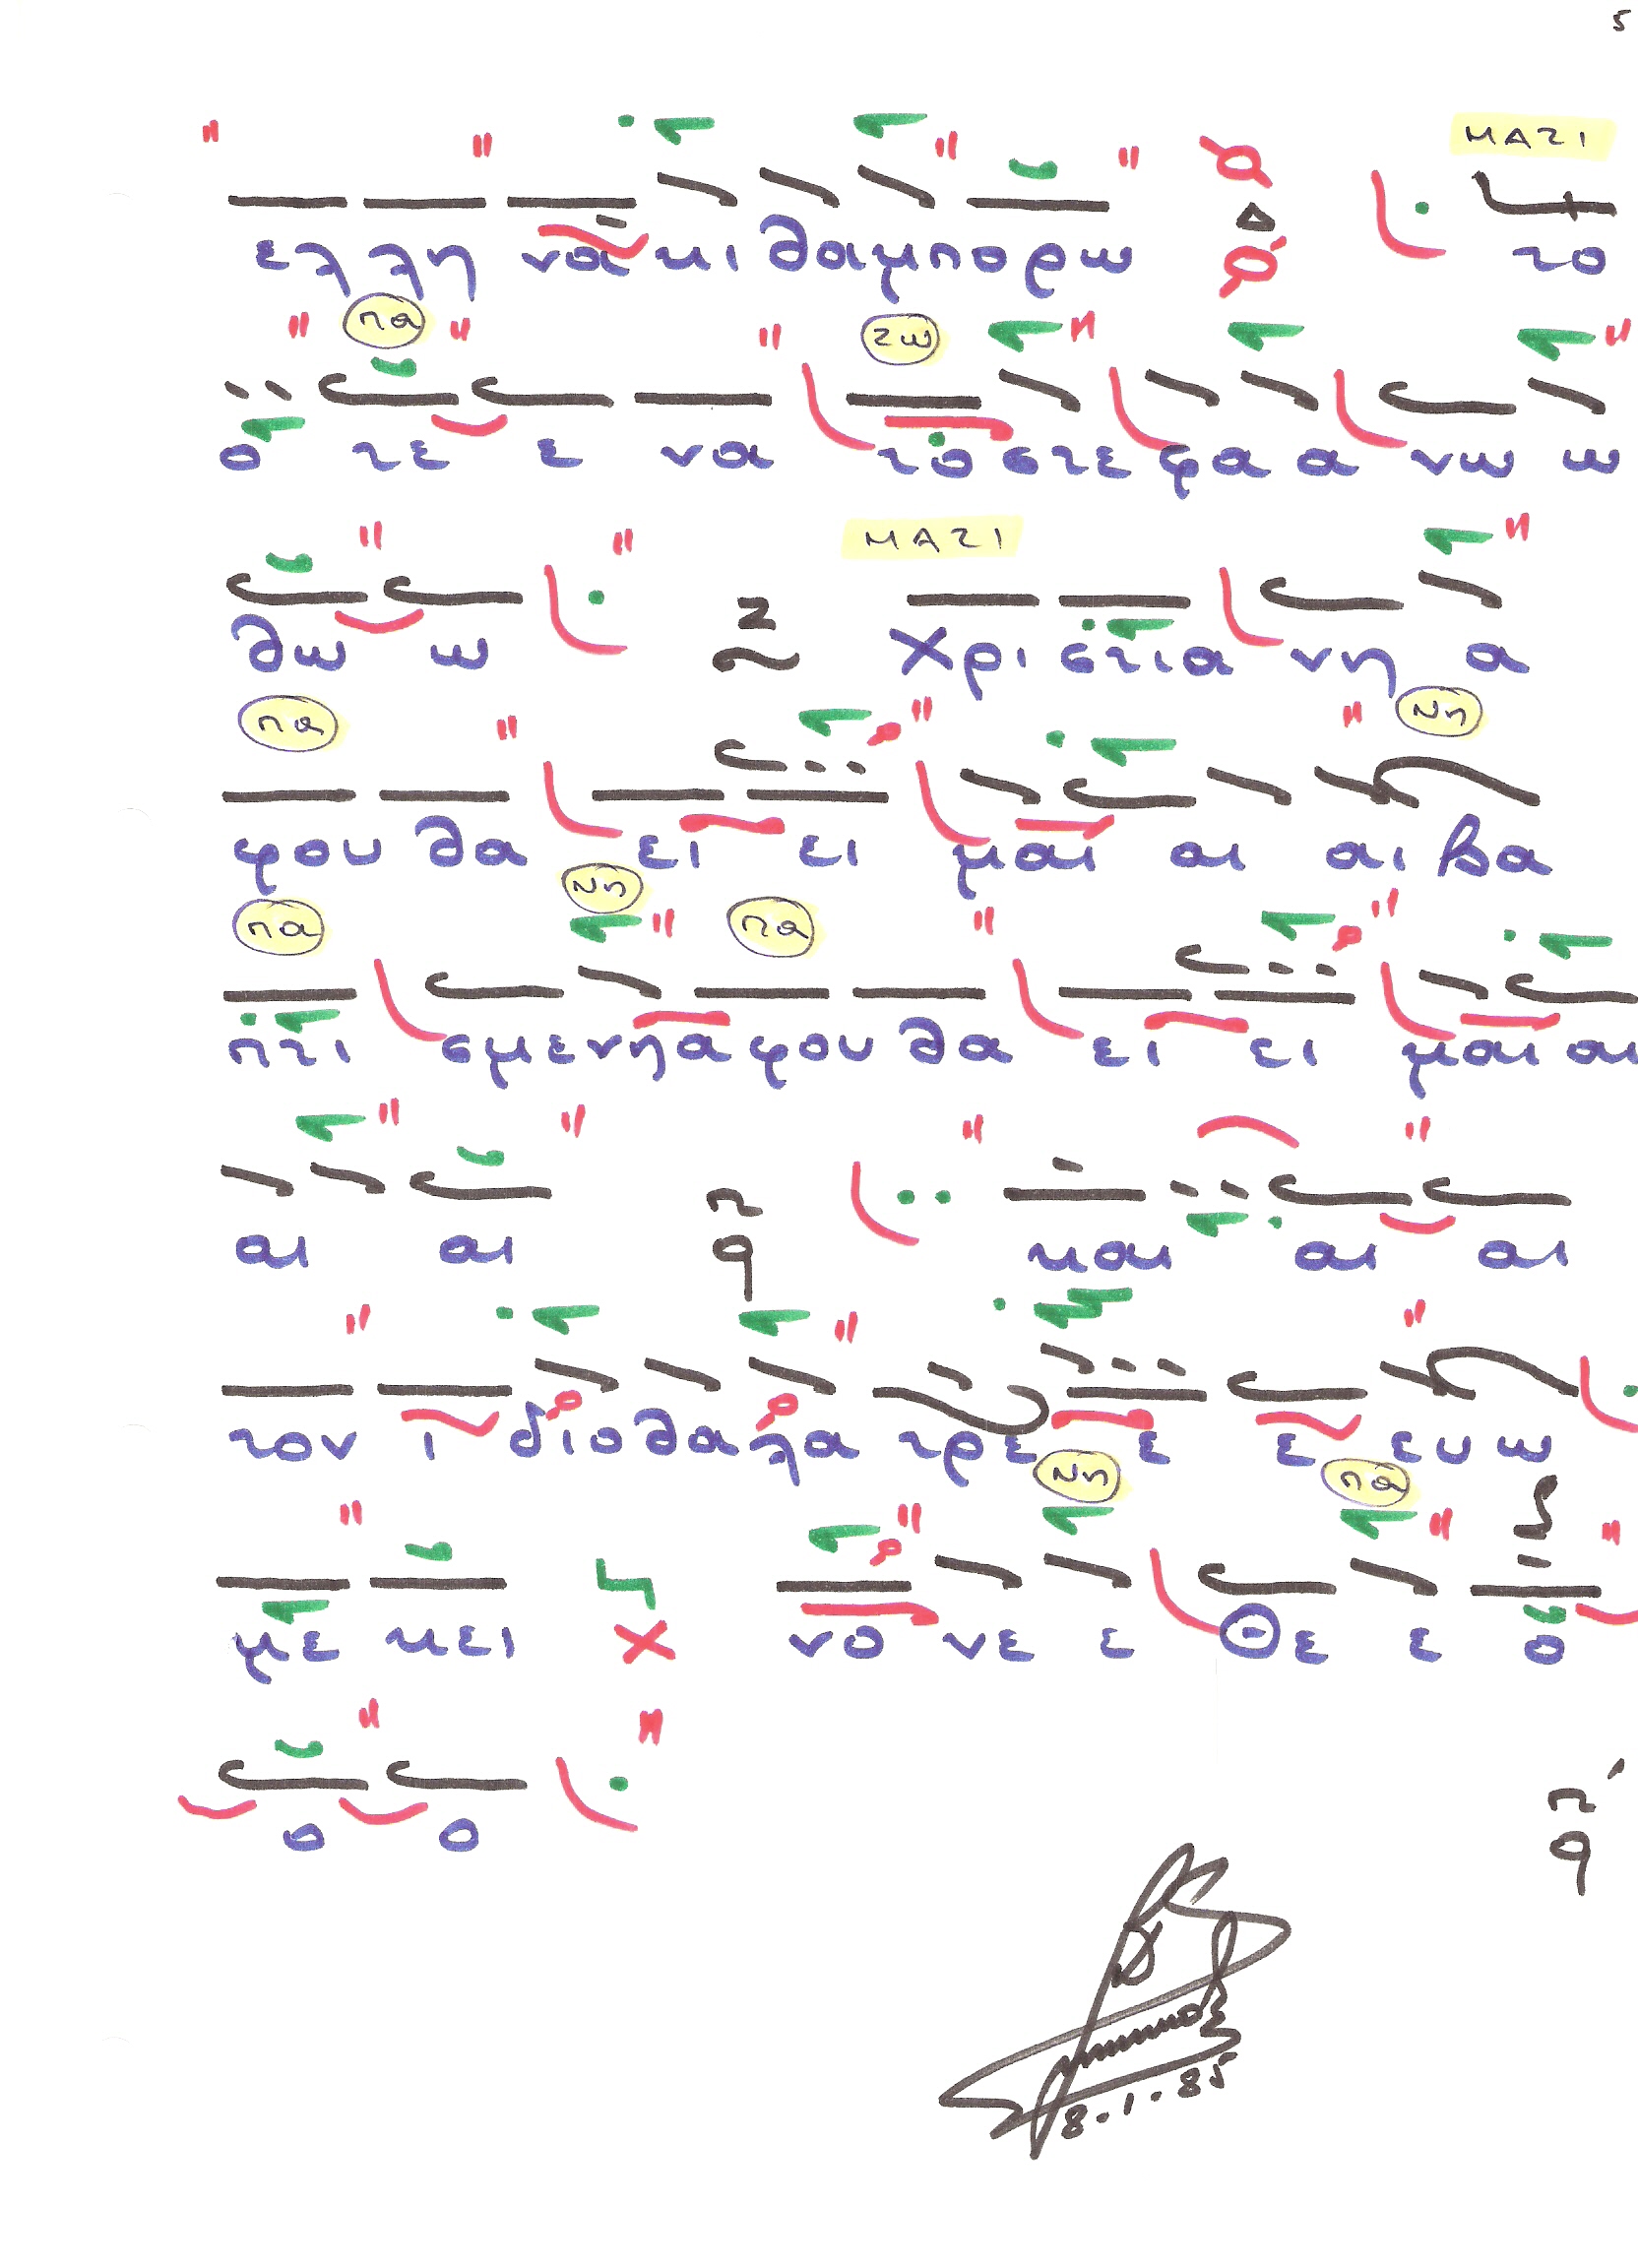 5
ΜΑΖΙ
ελλη να κι θα μπορω Δ το
πα ζω
ο τε ε να το στε φα α νω ω
ΜΑΖΙ
θω ω Ζ Χρι στια νη α
πα Νη
φου θα ει ει μαι αι αι βα
πα Νη πα
πτι σμε νη α φου θα ει ει μαι αι
αι αι π q και αι αι
τον ι διο θα λα τρε ε ε ευ ω
Νη πα
με κει χ νο νε ε Θε ε ο
ο ο π q
8.1.85